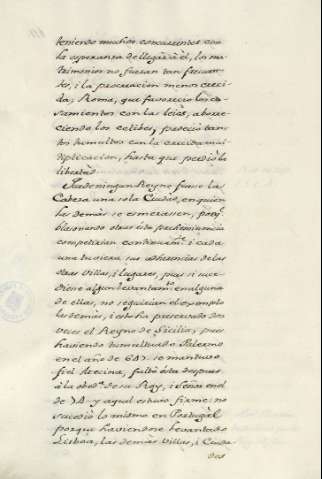 teniendo muchos concurrentes con
la esperanza de llegar à él, los ma-
trimonios no fueran tan frecuen-
tes, i la procreacion menos creci-
da; Roma, que favorecio los ca-
samientos con las leies, aborre-
ciendo los celibes, padecio tan-
tos tumultos con la crecida mul-
tiplicacion, hasta que perdiò la
libertad.
Jamàs ningun Reyno fuese la
Cabeza una sola Ciudad, en quien
las demàs se esmerasen, porq.
blasonando otras esta preheminencia
competirian continuam.te i cada
una tuviera sus adherencias de las
otras Villas, i lugares, pues si suce-
diese algun levantam.to en alguna
de ellas, no seguirian el exemplo
las demàs, i esto ha preservado dos
veces el Reyno de Sicilia, pues
haviendo tumultuado Palermo
en el año de 647. se mantuvo
fiel Mecina, faltò èsta despues
à la obed.a de su Rey, i Señor en el
de 74. y aquel estuvo firme: no
sucediò lo mismo en Portugàl
porque haviendose levantado
Lisboa, las demàs Villas, i Ciuda-
des